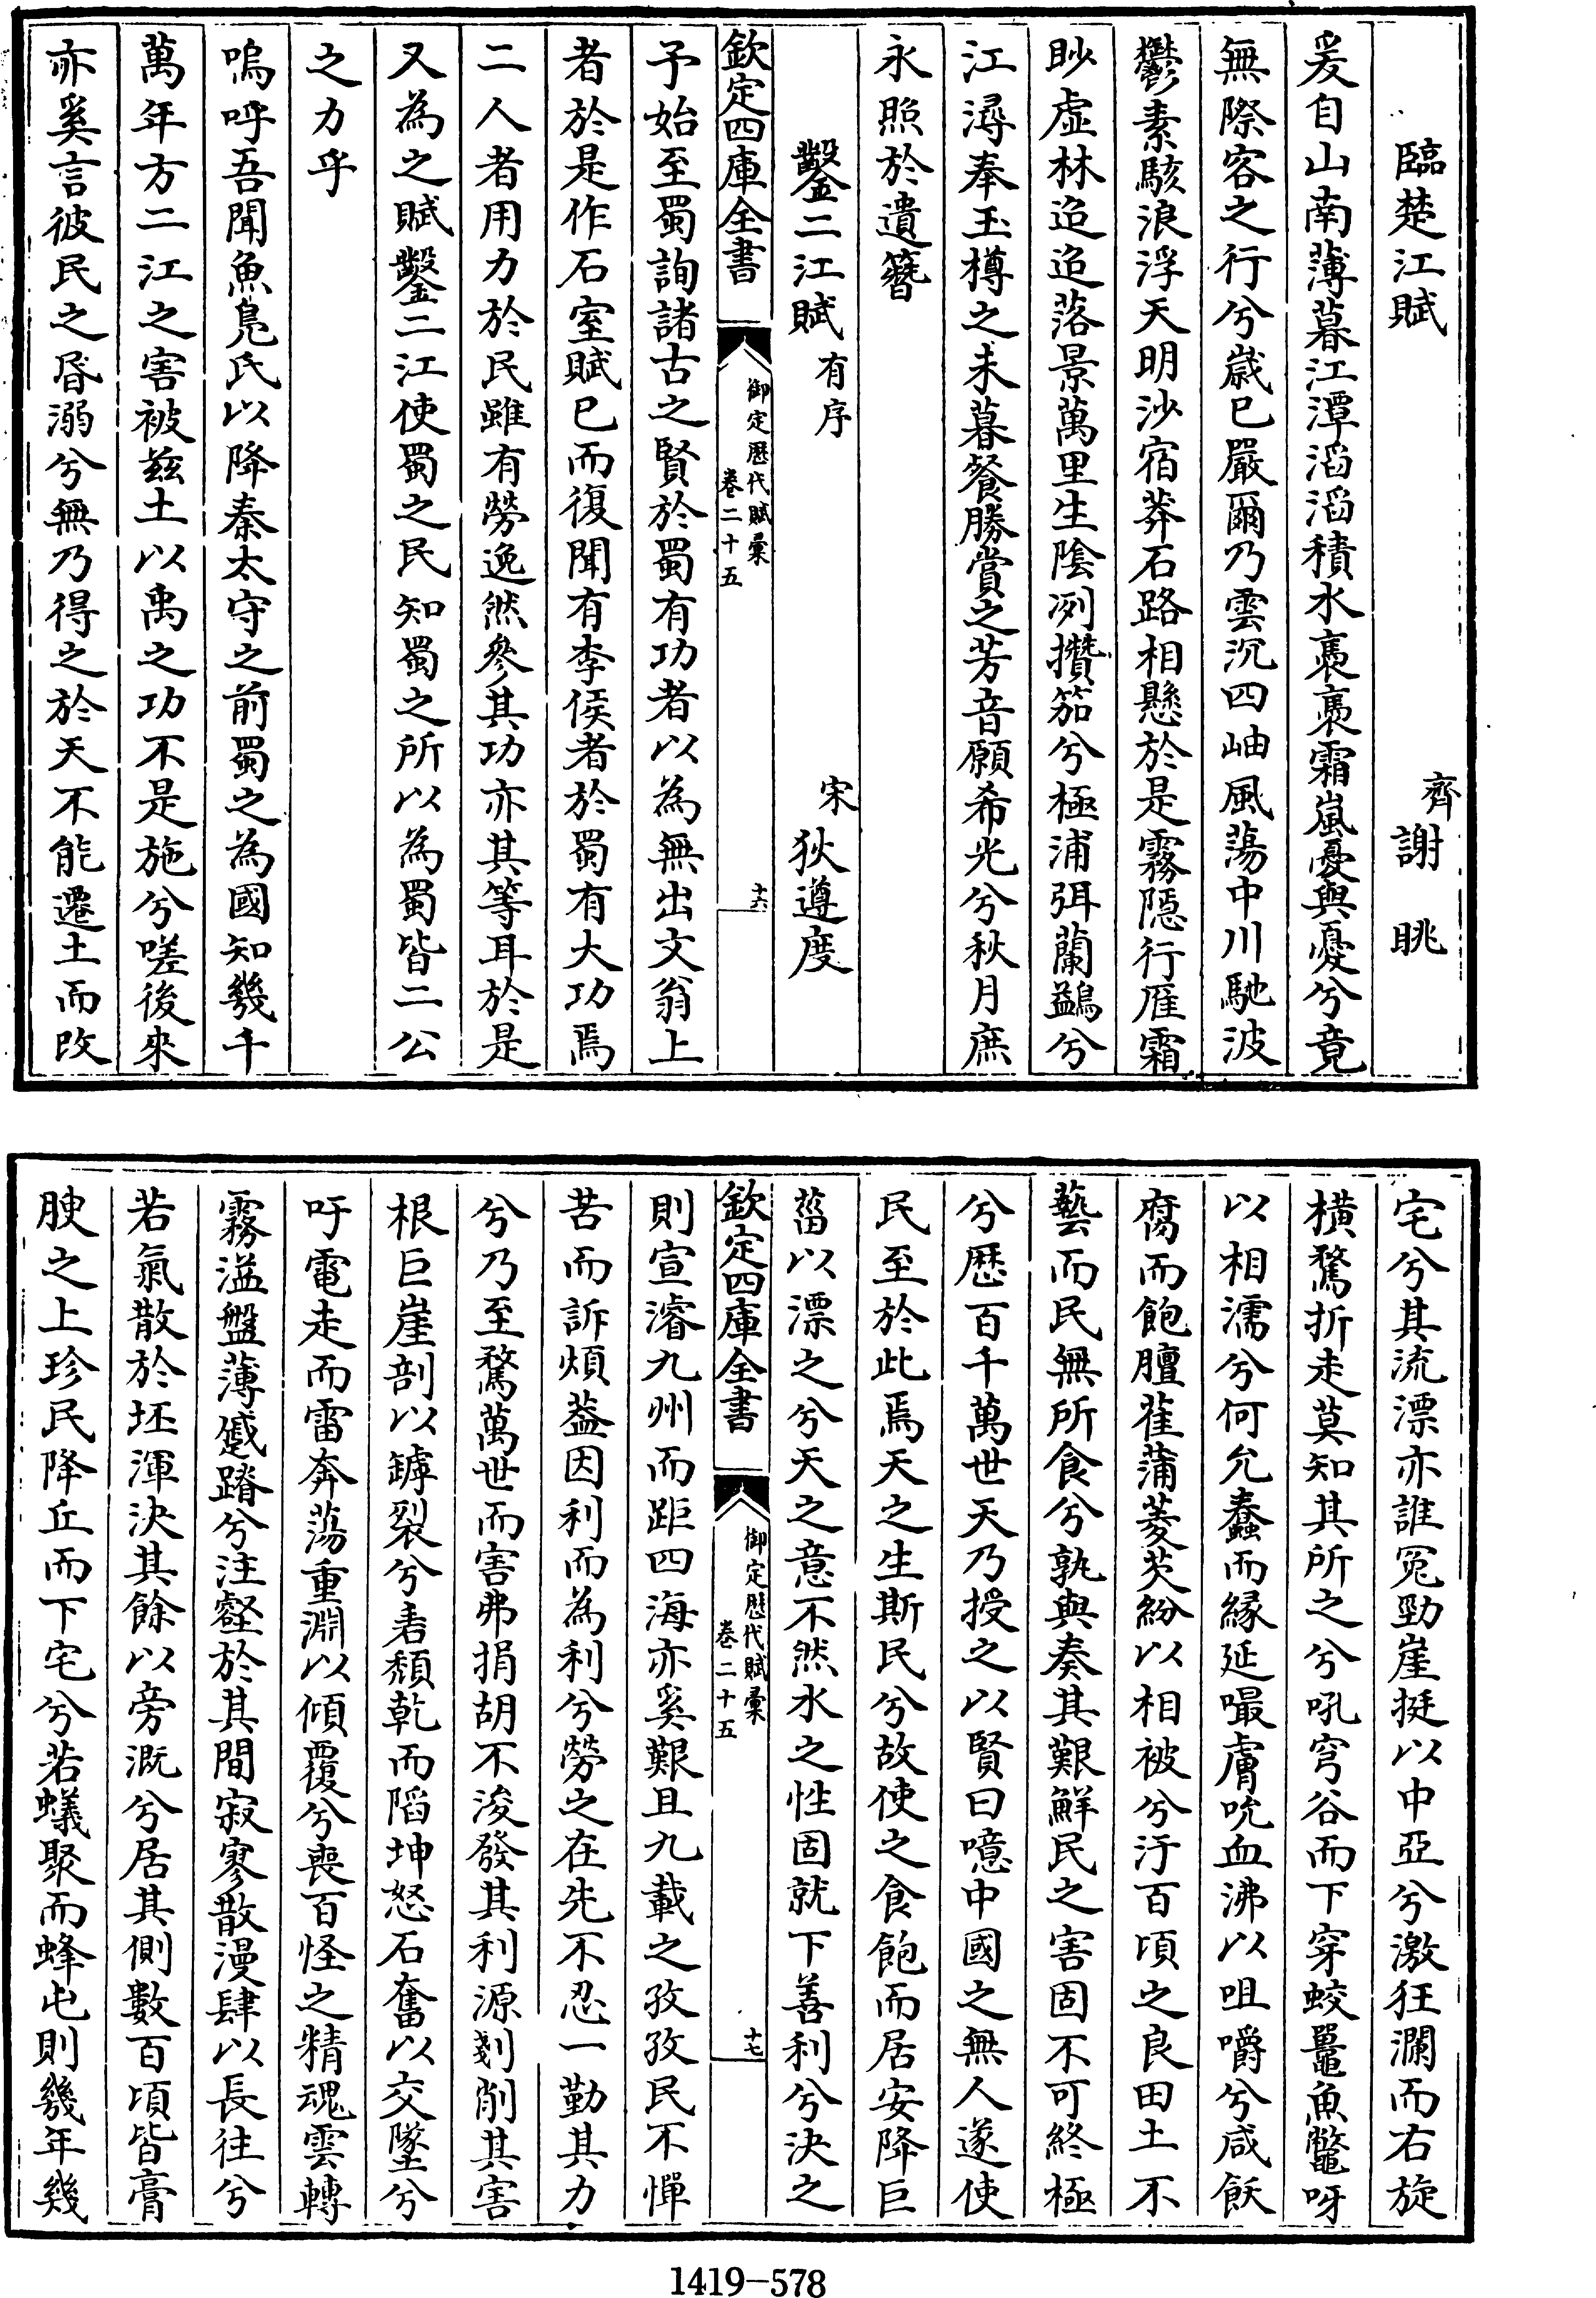 臨楚江賦　齊謝眺
爰自山南薄暮江潭滔滔積水裊裊霜嵐憂與憂兮竟
無際客之行兮歲已嚴爾乃雲沉四岫風蕩中川馳波
鬱素駭浪浮天明沙宿莽石路相懸於是霧隱行雁霜
眇虛林迢迢落景萬里生陰冽攢笳兮極浦弭蘭鷁兮
江潯奉玉樽之未暮餐勝賞之芳音願希光兮秋月庶
永照於遺簪
鑿二江賦有序　宋狄遵度
欽定四庫全書　御定歷代賦彙　卷二十五　十六
予始至蜀詢諸古之賢於蜀有功者以為無出文翁上
者於是作石室賦已而復聞有李侯者於蜀有大功焉
二人者用力於民雖有勞逸然參其功亦其等耳於是
又為之賦鑿二江使蜀之民知蜀之所以為蜀皆二公
之力乎
嗚呼吾聞魚鳧氏以降秦太守之前蜀之為國知幾千
萬年方二江之害被茲土以禹之功不是施兮嗟後來
亦奚言彼民之昏溺兮無乃得之於天不能遷土而改
宅兮其流漂亦誰冤勁崖挺以中亞兮激狂瀾而右旋
橫騖折走莫知其所之兮吼穹谷而下穿蛟鼉魚鼈呀
以相濡兮何允蠢而緣延嘬膚吮血沸以咀嚼兮咸飫
腐而飽膻萑蒲菱芡紛以相被兮汙百頃之良田土不
藝而民無所食兮孰與奏其艱鮮民之害固不可終極
兮歷百千萬世天乃授之以賢曰噫中國之無人遂使
民至於此焉天之生斯民兮故使之食飽而居安降巨
菑以漂之兮天之意不然水之性固就下善利兮決之
欽定四庫全書　御定歷代賦彙　卷二十五　十七
則宣濬九州而距四海亦奚艱且九載之孜孜民不憚
苦而訴煩葢因利而為利兮勞之在先不忍一勤其力
兮乃至騖萬世而害弗捐胡不浚發其利源剗削其害
根巨崖剖以罅裂兮砉頹乾而陷坤怒石奮以交墜兮
吁電走而雷奔蕩重淵以傾覆兮喪百怪之精魂雲轉
霧溢盤薄蹙蹐兮注壑於其間寂寥散漫肆以長往兮
若氣散於坯渾決其餘以旁溉兮居其側數百頃皆膏
腴之上珍民降丘而下宅兮若蟻聚而蜂屯則幾年幾
1419-578